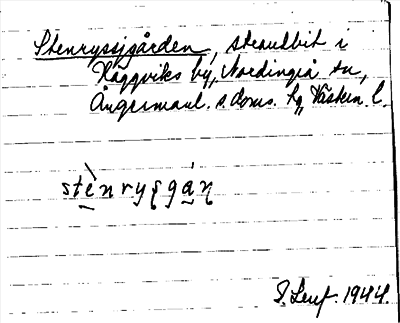 Stenryssjgården, strandbit i
Häggviks by, Nordingrå sn,
Ångermanl. s doms. hg, Västern. l.
stènryʂgán
1944.